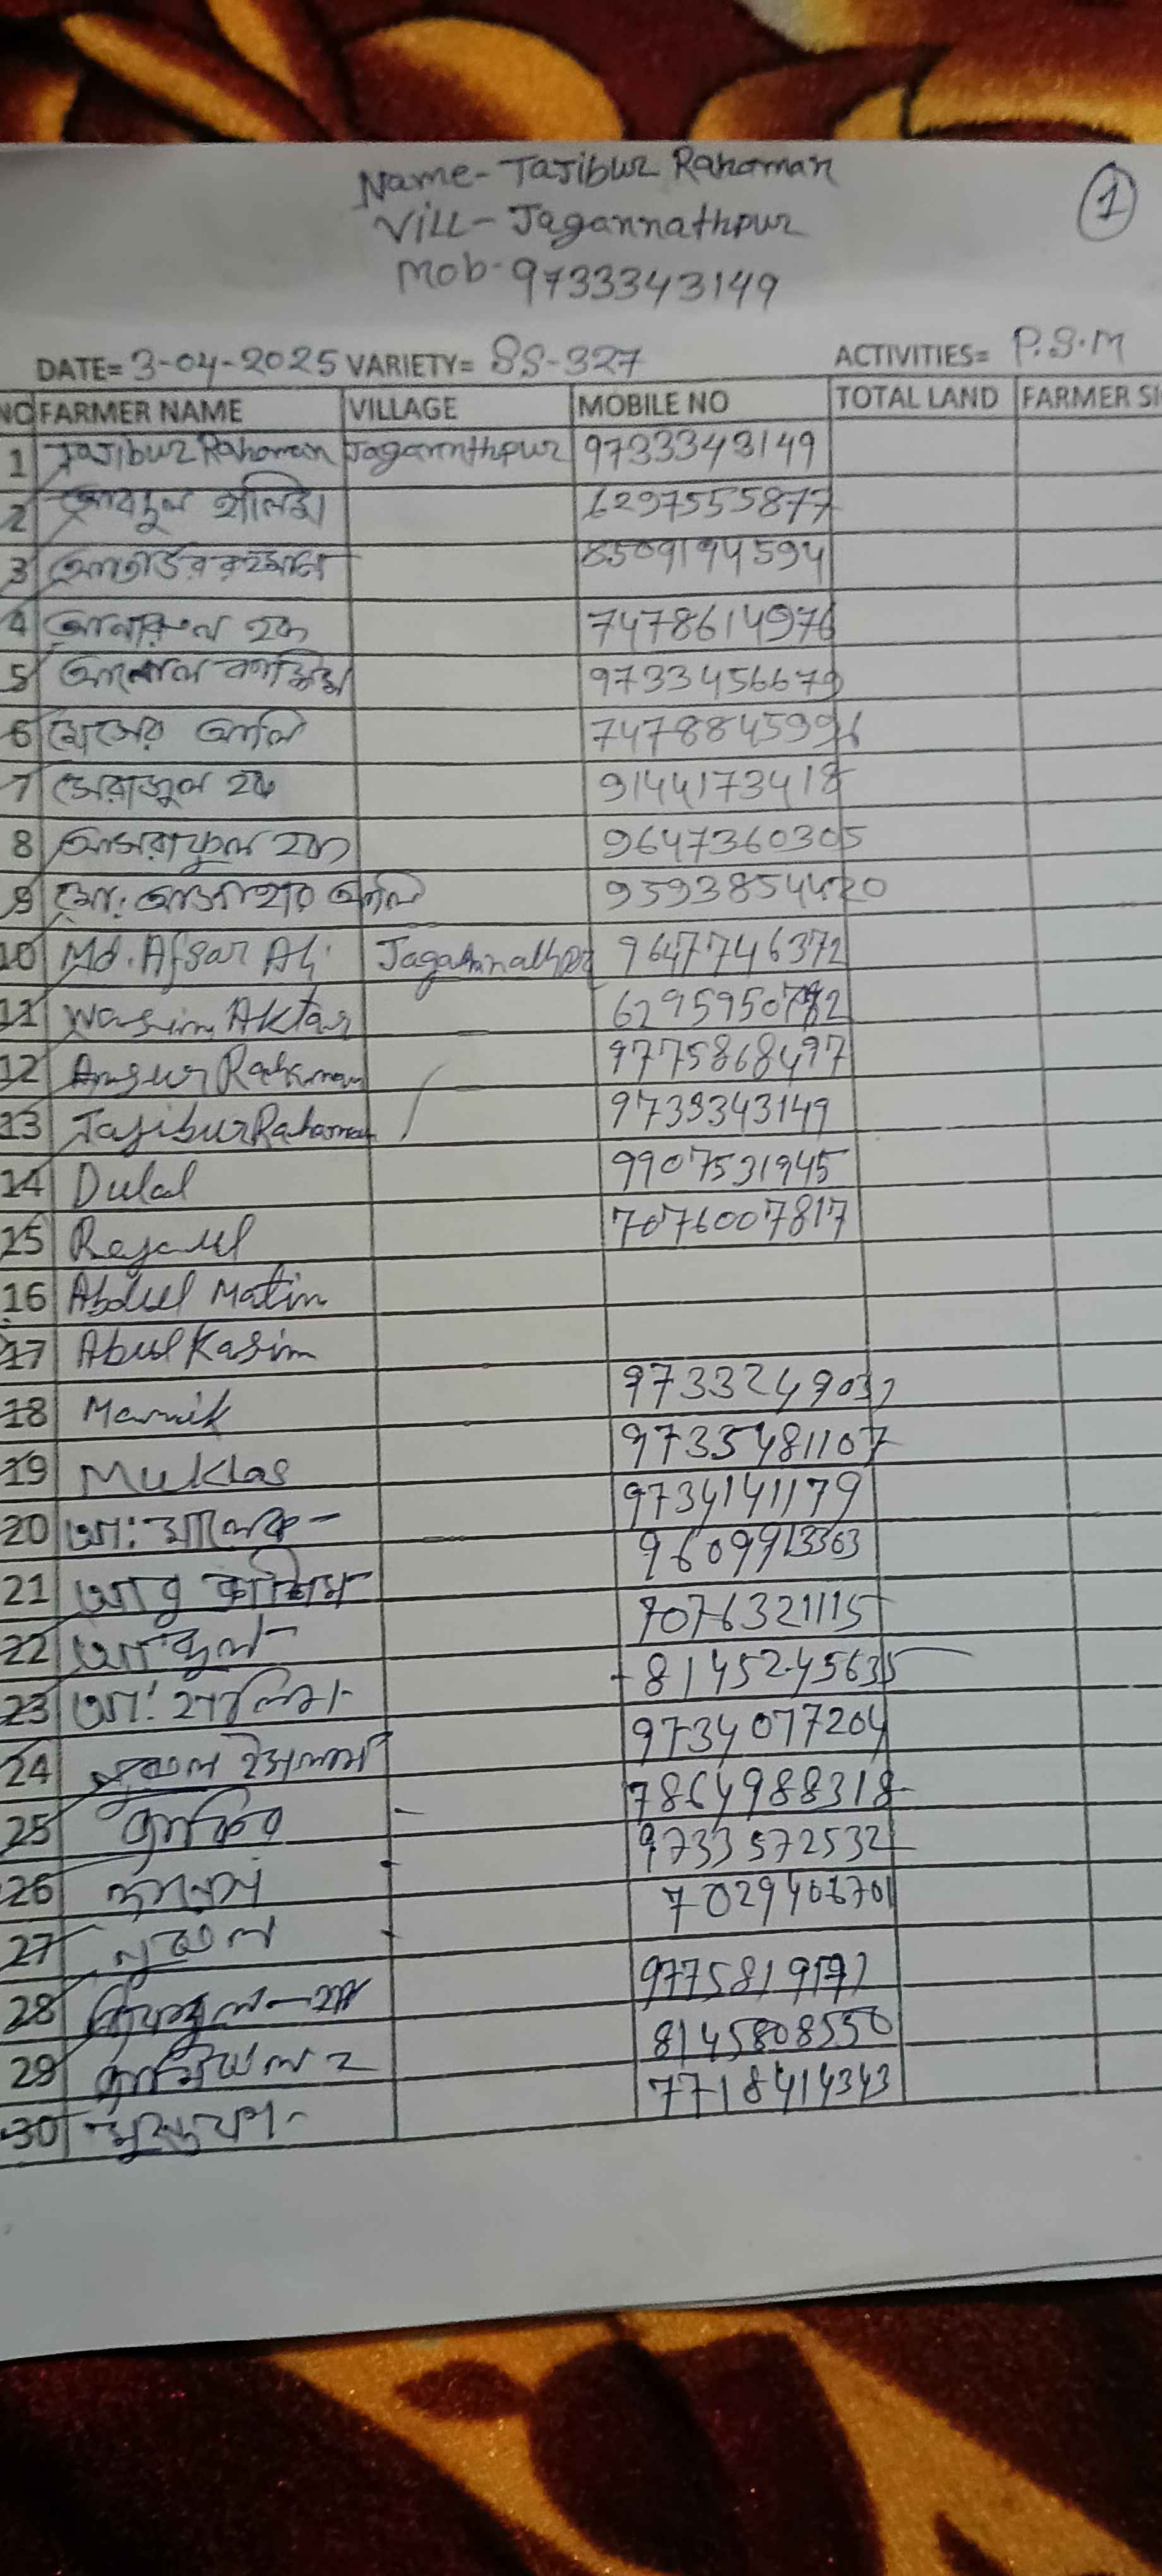 Name- Tajibur Rahoman
Vill- Jagannathpur
Mob- 9733343149
1
DATE= 3-04-2025 VARIETY= SS-327 ACTIVITIES= P.S.M
NO FARMER NAME VILLAGE MOBILE NO TOTAL LAND FARMER SI
1 Tajibur Rahoman Jagannthpur 9733343149
2 আবদুল হালিম 6297555877
3 রহমান 8509194594
4 আনারুল হক 7478614976
5 9733456679
6 আলি 7478845996
7 সেরাজুল হক 9144173418
8 আসরাফুল হক 9647360305
9 মো: আজাহার আলি 9593854420
10 Md. Afsar Ali Jagannathpur 9647746372
11 Wasim Aktar 6295950
12 Ansur Rahaman 9775868497
13 Tajibur Rahaman 9733343149
14 Dulal 9907531945
15 Rejaul 7076007817
16 Abdul Matin
17 Abul Kasim
18 Manik
19 Muklas 9735481107
20 আ: মালেক 9734141179
21 আবু কাশিম 9609913363
22 7076321115
23 আ: হালিম 8145245635
24 নুরুল ইসলাম 9734077204
25 জাকির 7864988318
26 9733572532
27 নুরুল
28 97758
29 8145808550
30 মুস্তফা 7718414343